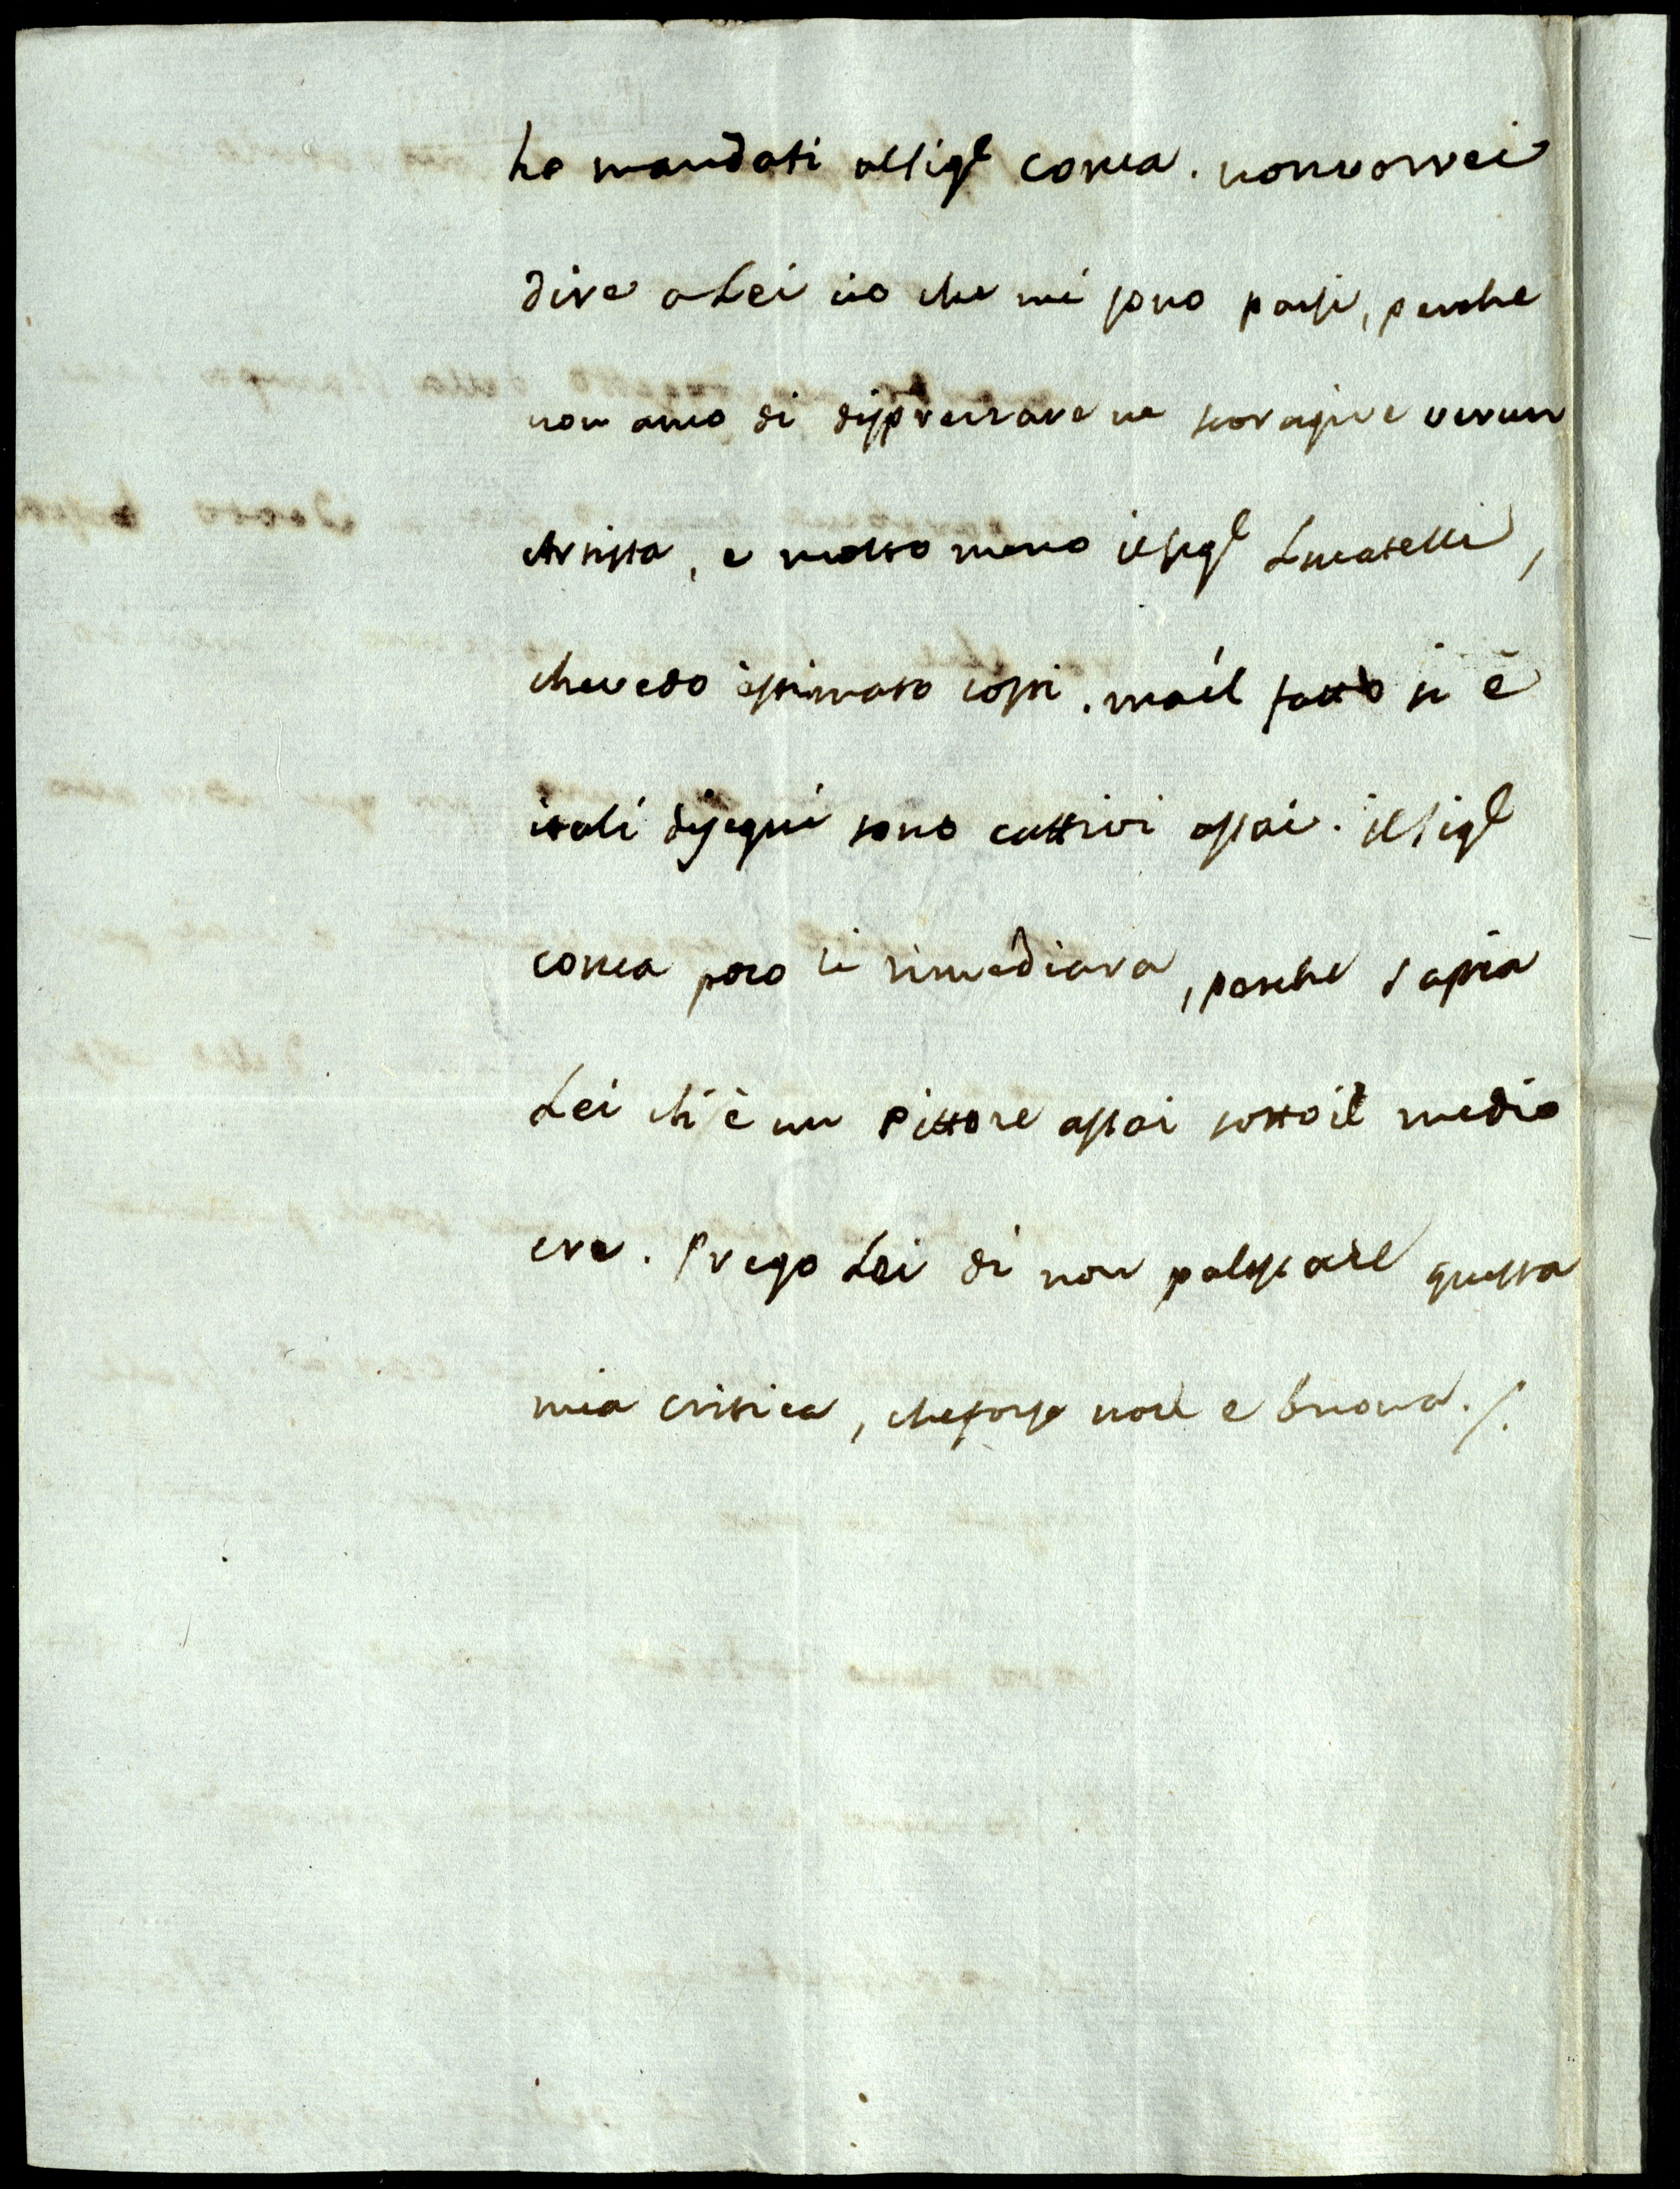 ho mandati al Sig.r conca. non vorrei
dire a Lei cio che mi sono parsi, perche
non amo di disprezzare ne scoragire verun
Artista, e molto meno il sig.r Lucatelli,
che vedo estimato costi. ma il fatto si è
i tali disegni sono cattivi assai. il Sig.r
conca poco ci rimediara, perche sapia
Lei ch'è un Pittore assai sotto il medio
cre. Prego Lei di non palesare questa
mia critica, che forse non e buona./.